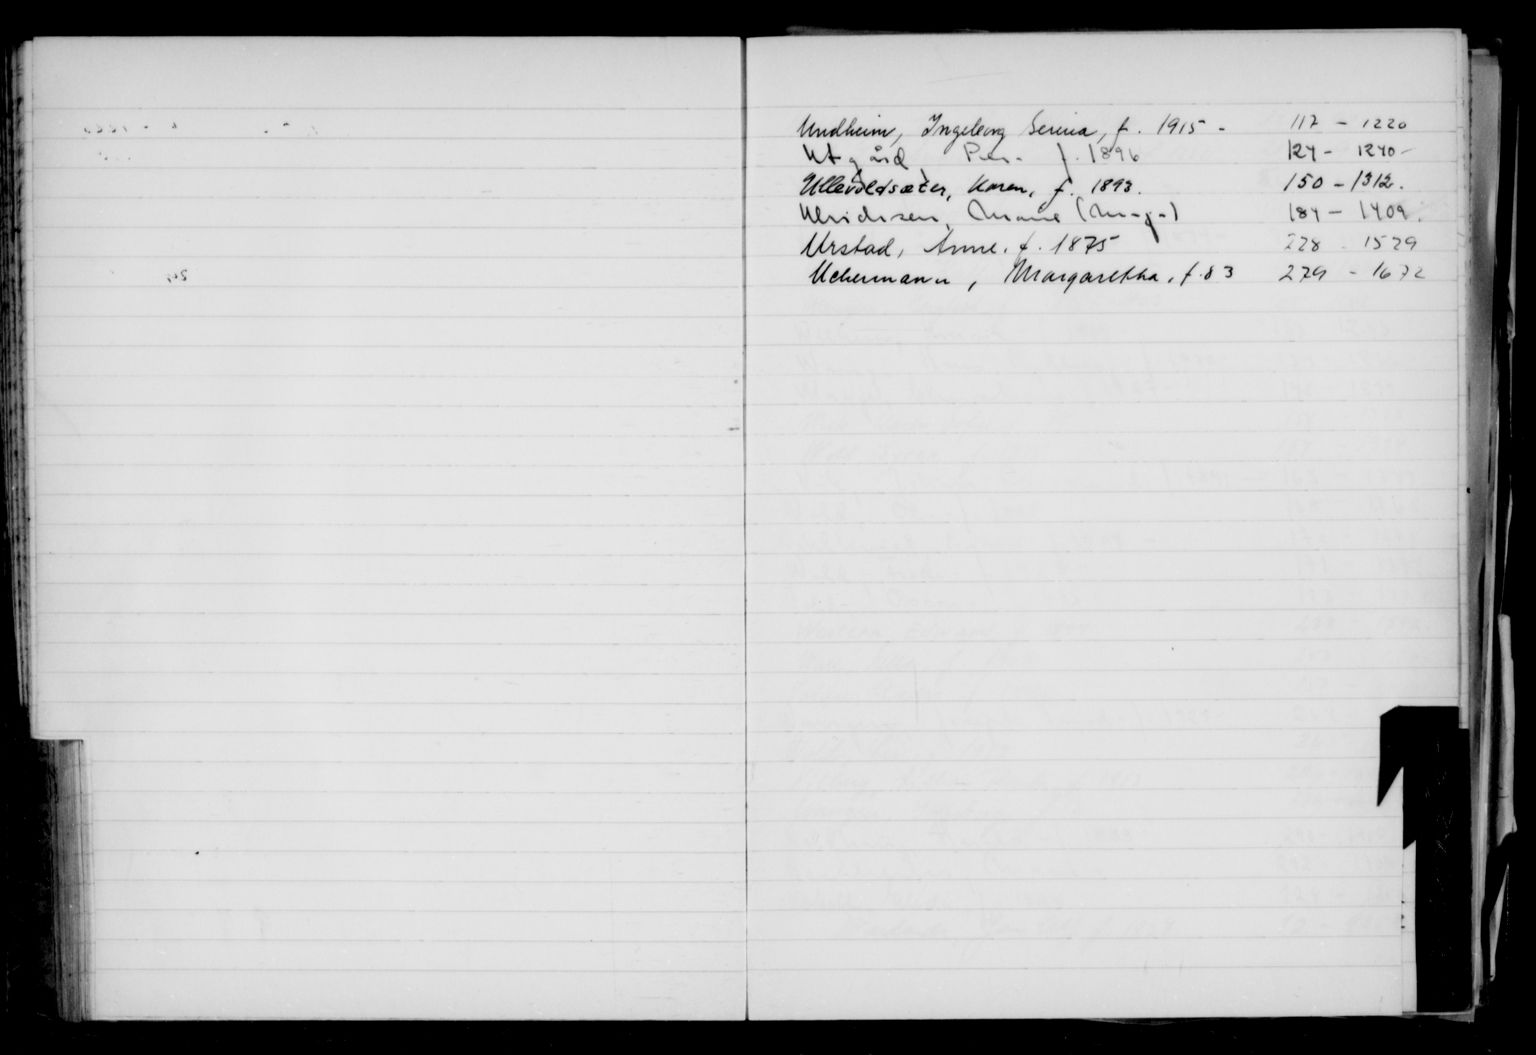 Undheim, Ingeborg Serina, f. 1915 - 117 - 1220
Utgård, Per - f. 1896 124 - 1240 -
Ullevoldsæter, Karen, f. 1893. 150 - 1312.
Ulrichsen, Marie 184 - 1409.
Urstad, Anne. f. 1875 228 - 1529
Uchermann, Margaretha, f. 83 279 - 1672